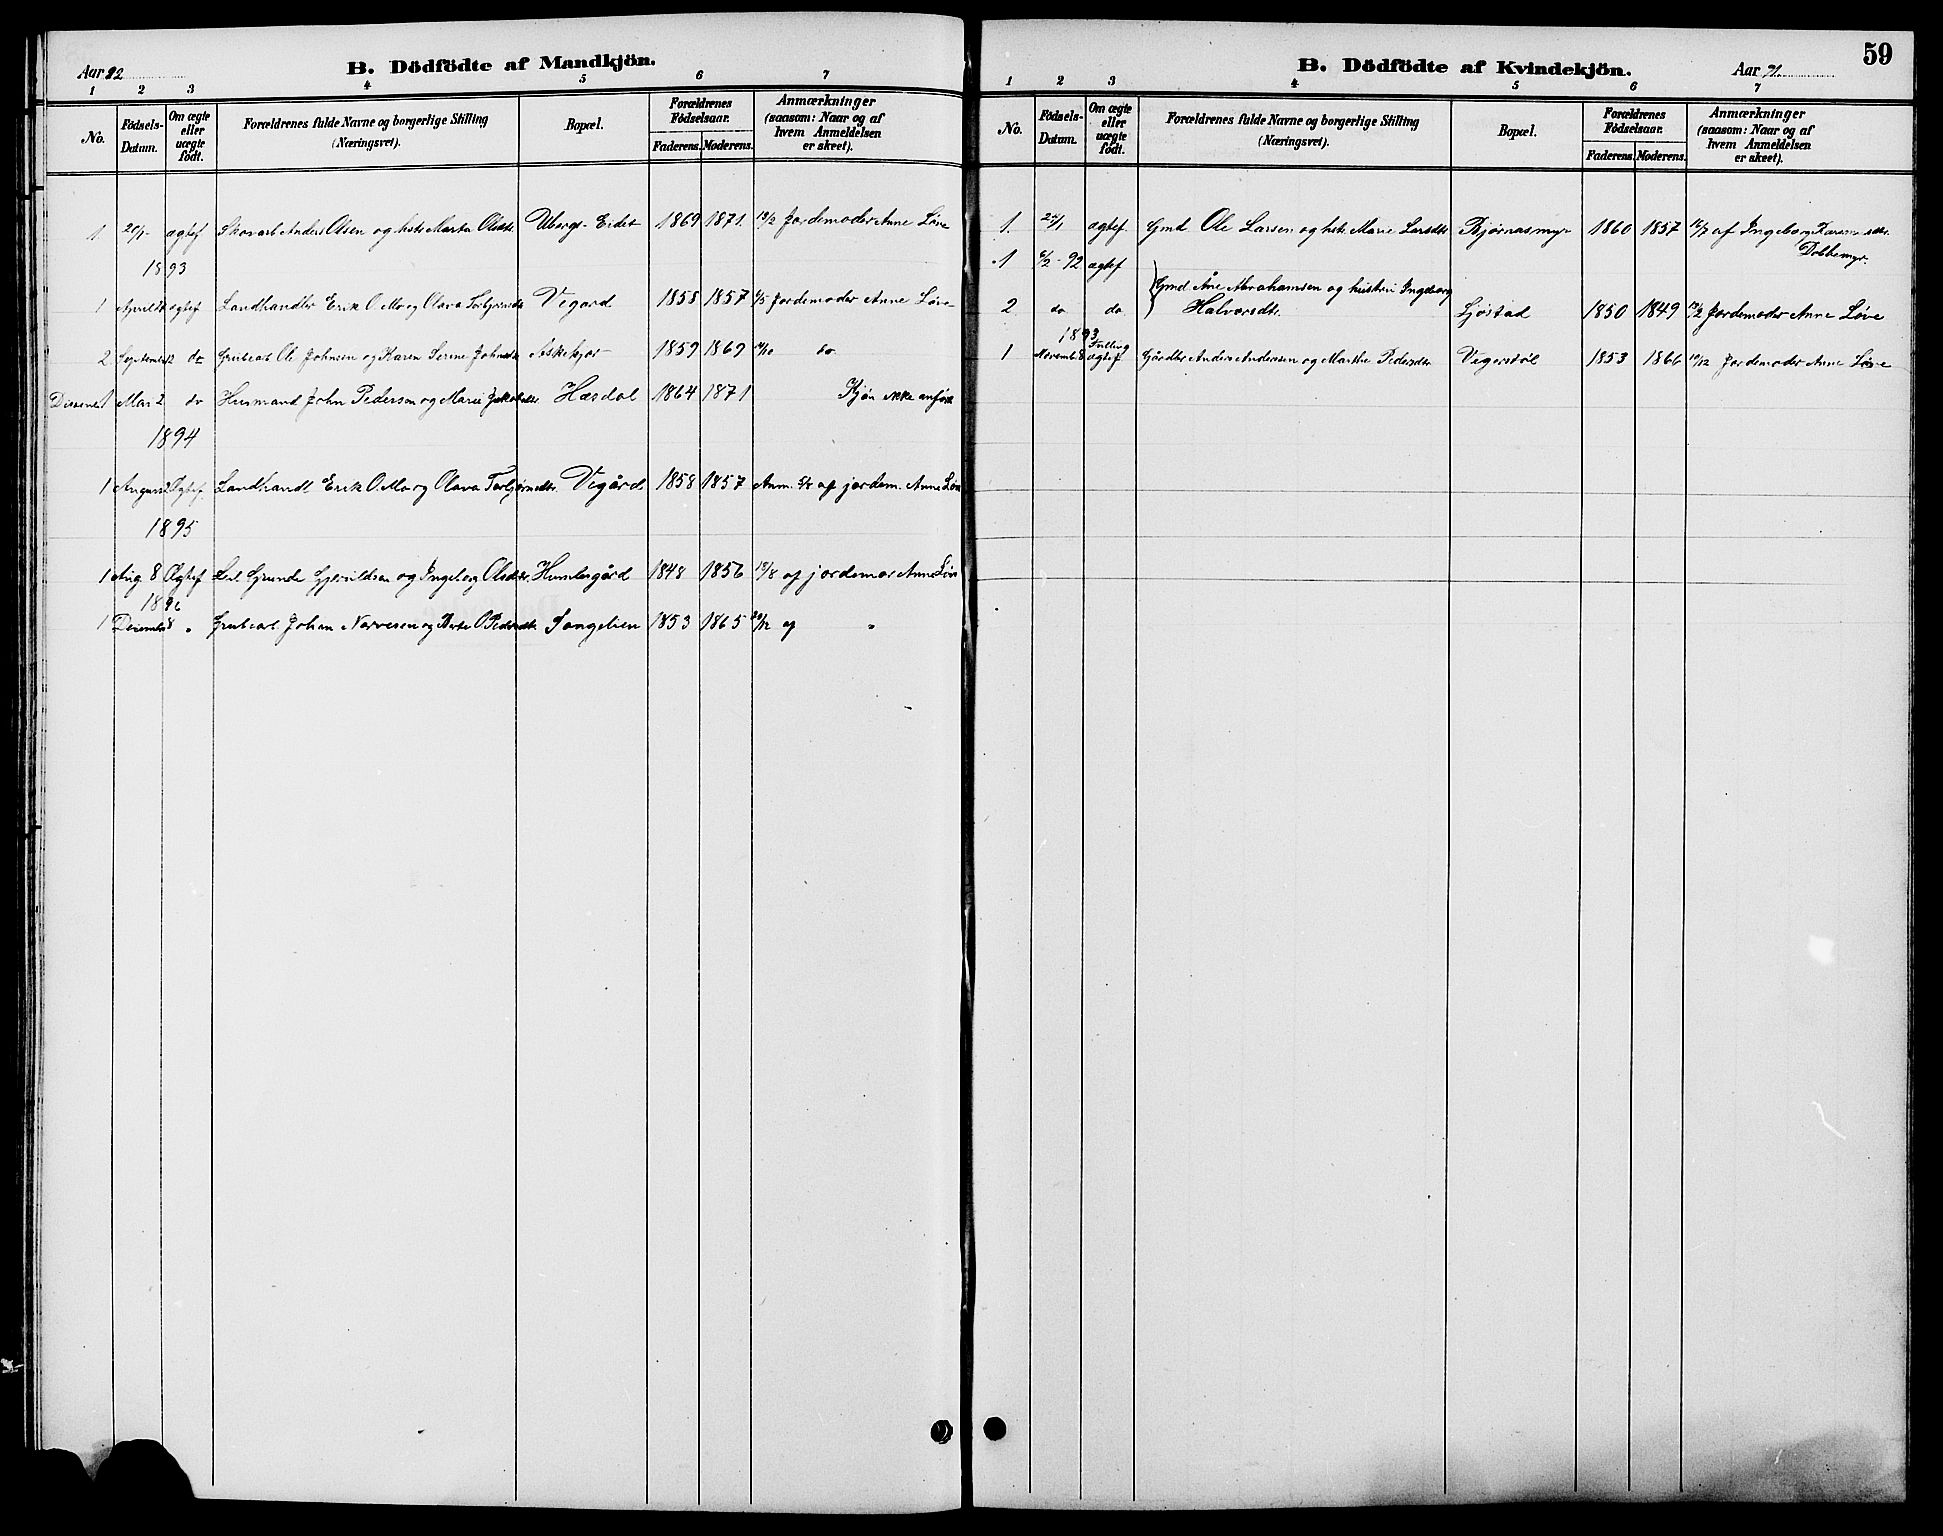 Aar 92
B. Dödfödte af Mandkjön.
1 2 3 4 5 6 7
No. Födsels-Datum. Om ægte eller uægte födt. Forældrenes fulde Navne og borgerlige Stilling (Næringsvei). Bopæl. Forældrenes Födselsaar. Faderens. Moderens. Anmærkninger (saasom: Naar og af hvem Anmeldelsen er skeet).
1. ægtef Skovarb Anders Olsen og hst Marta Olsdtr. Ubergs-Eidet 1869 1871. 13/2 Jordemoder Anne Løve
1893
1 April ægtef Landhandler Erik O. Mo og Olava Torbjørnsdtr Vegard 1858 1857 Jordemoder Anne Løve
2 Septemb 12 do Grubearb Ole Johnsen og Karen Serine Johnsdtr Askekjær 1859 1869 do
1 Mai 2 do Husmand John Pedersen og Maren Jakobsdtr. Hæsdal 1864 1871 Kjøn ikke anført
1894
1 August Ægtef. Landhandl. Erik O. Mo og Olava Torbjørnsdtr. Vegård 1858 1857 Anm. 5/8 af jordem. Anne Løve
1895
1 Aug 8 Ægtef Grunde Gjeruldsen og Ingeborg Olsdtr. Humlegård 1848 1856 13/8 af jordemor Anne Løve
1896
1 Decemb 8 „ Grubearb Johan Narvesen og Berte O. Pedersdtr. Songelien 1853 1865 30/12 af „
59
B. Dödfödte af Kvindekjön.
Aar 91.
1 2 3 4 5 6 7
No. Födsels-Datum. Om ægte eller uægte födt. Forældrenes fulde Navne og borgerlige Stilling (Næringsvei). Bopæl. Forældrenes Födselsaar. Faderens. Moderens. Anmærkninger (saasom: Naar og af hvem Anmeldelsen er skeet).
1. 24/1 ægtef Gmd Ole Larsen og hst. Marie Larsdtr Bjørnasmyr 1860 1857 af Ingeborg Karine
Dobbemyr.
1 6/2-92 ægtef
Gmd Åne Abrahamsen og hustru Ingeborg
2 do do Halvorsdtr. Sjøstad 1850 1849 Jordemoder Anne Løve
1893
Tvilling
1 Novemb 8 ægtef Gårdbr Anders Andersen og Marthe Pedersdtr. Vegerstøl 1853 1866 10/12 Jordemoder Anne Løve